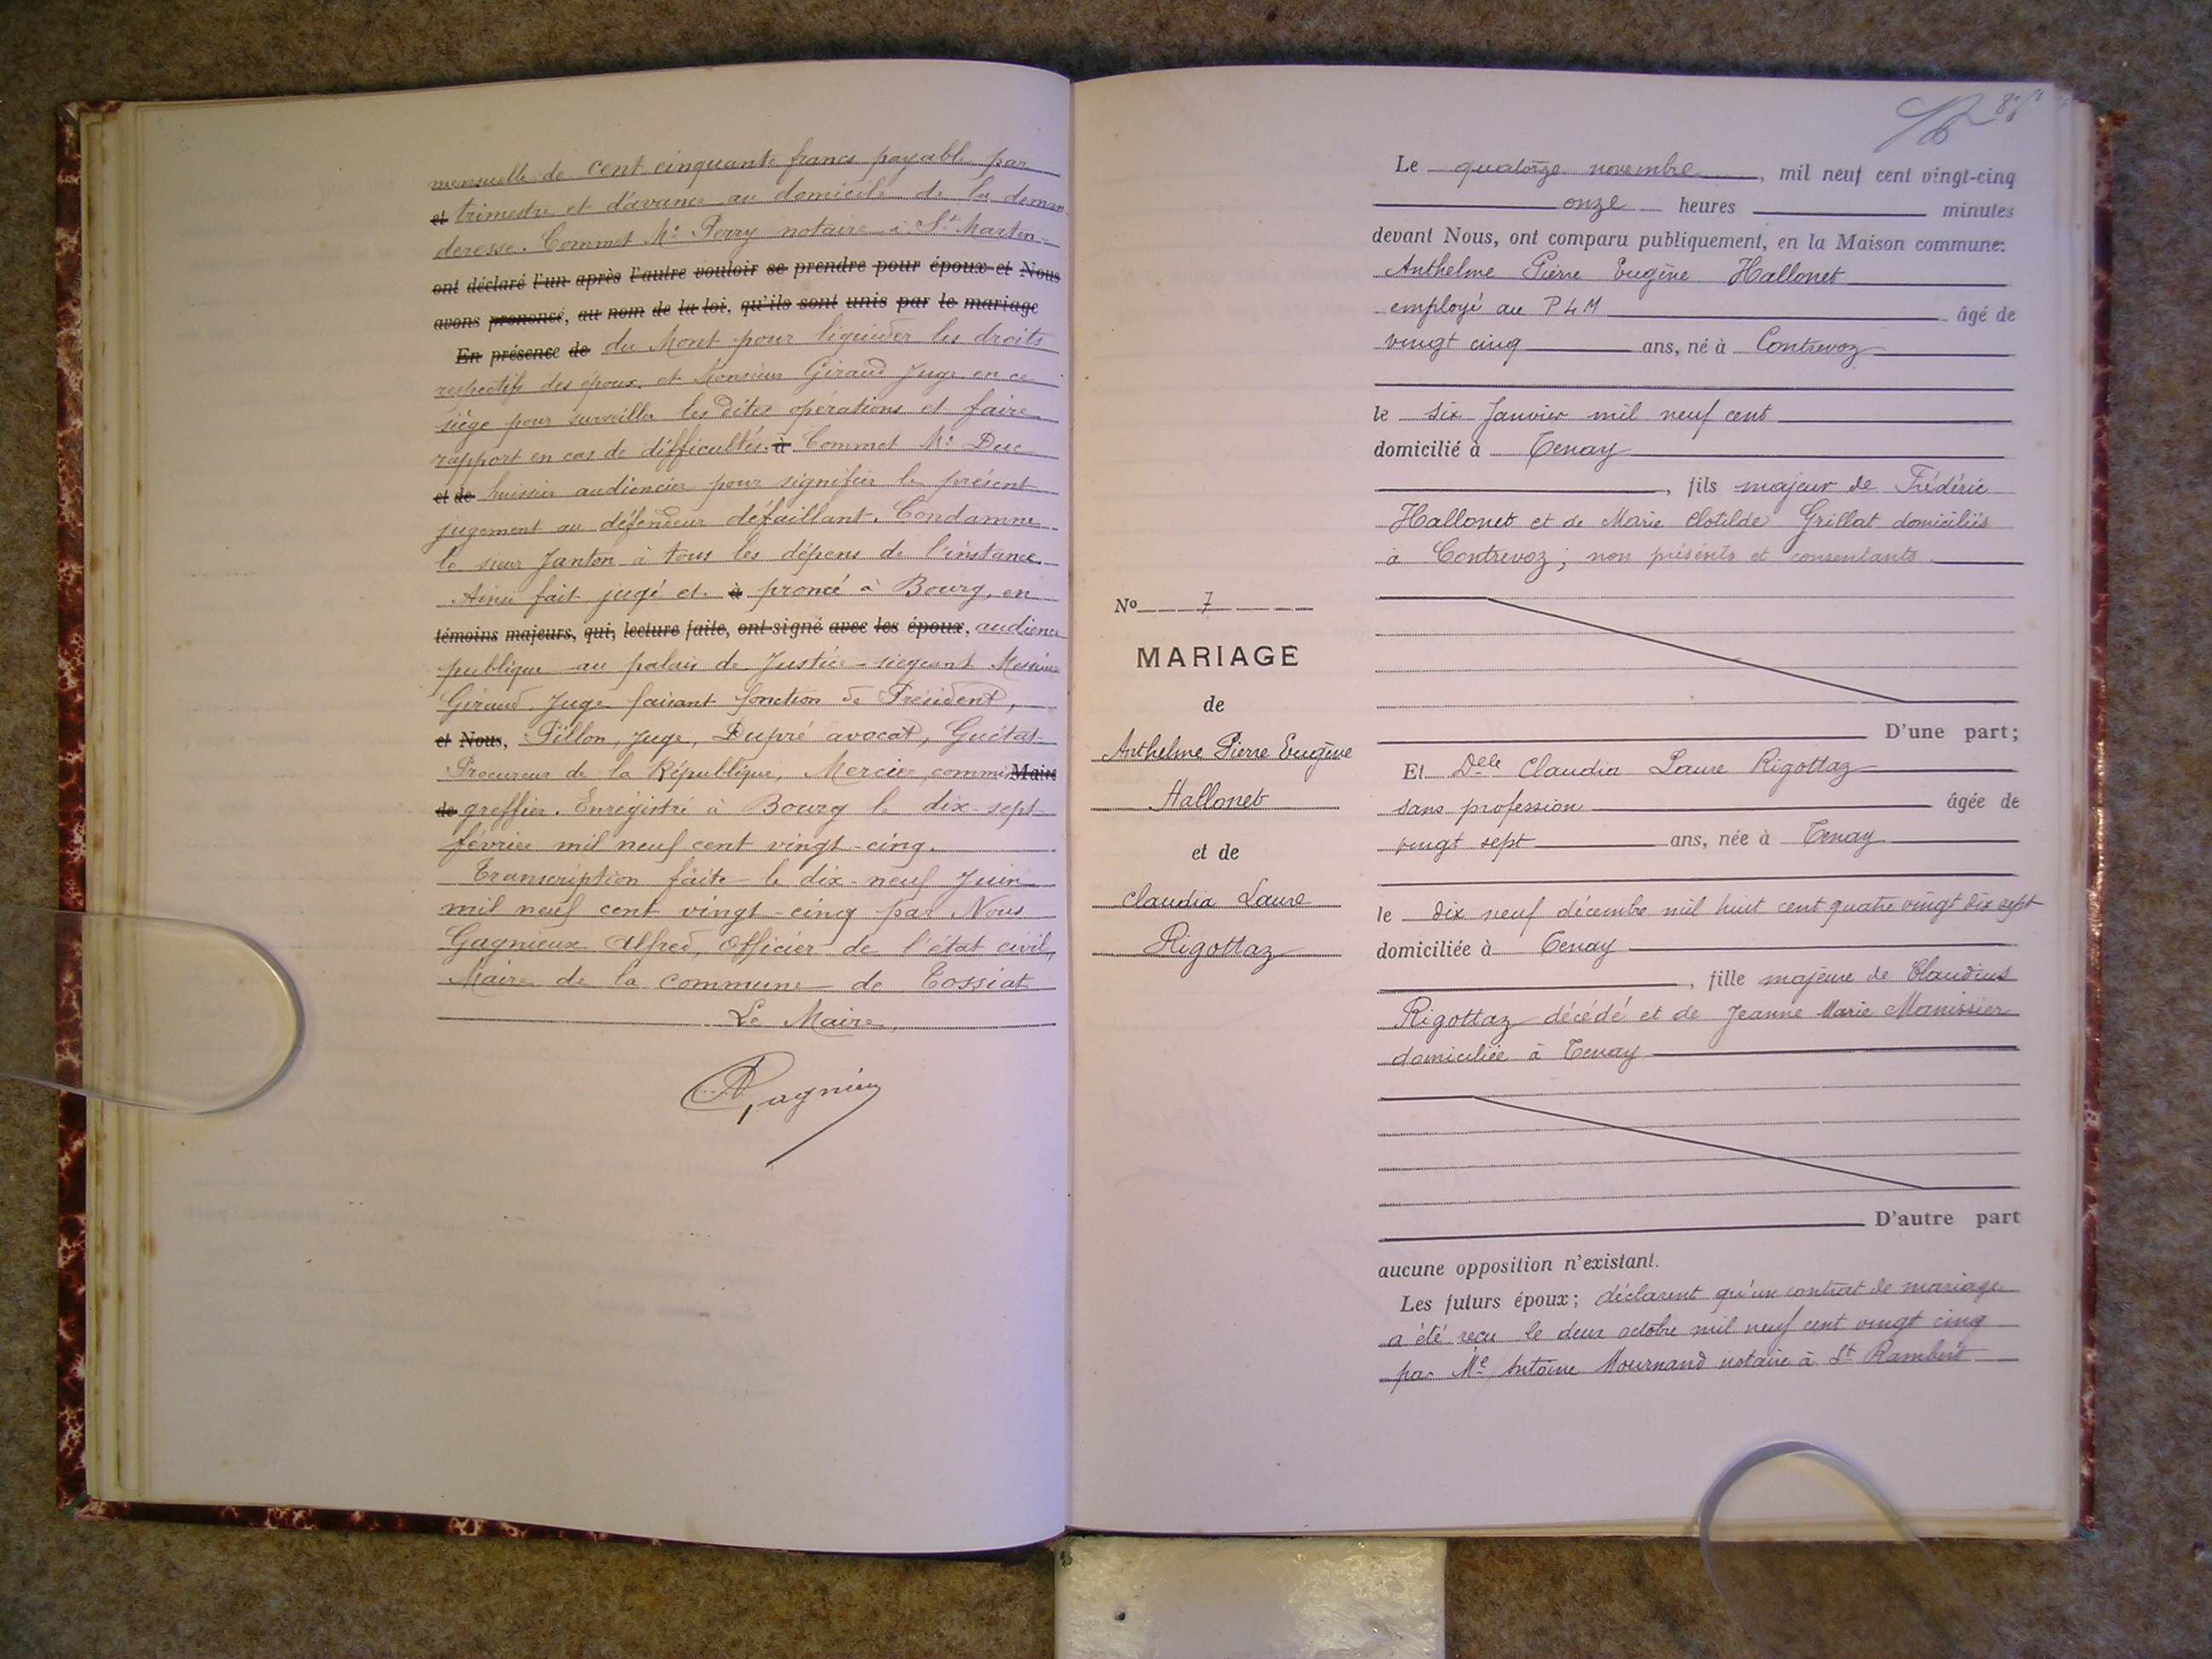 mensuelle de cent cinquante francs payable par
et trimestre et d'avance au domicile de la deman
deresse. Commet Me Perry notaire à St Martin
ont déclaré l'un après l'autre vouloir se prendre pour époux et Nous
avons prononcé, au nom de la loi, qu'ils sont unis par le mariage
En présence de du Mont pour liquider les droits
respectifs des époux et Monsieur Giraud Juge en ce
siège pour surveiller les dites opérations et faire
rapport en cas de difficultés. à Commet Me Duc
et de huissier audiencier pour signifier le présent
jugement au défendeur défaillant. Condamne
le sieur Janton à tous les dépens de l'instance
Ainsi fait jugé et à proncé à Bourg, en
témoins majeurs, qui, lecture faite, ont signé avec les époux, audience
publique au palais de Justice siégeant Messieurs
Giraud Juge faisant fonction de Président,
et Nous, Pillon, Juge, Dupré avocat, Guétat
Procureur de la République, Mercier, commis Maire
de greffier. Enregistré à Bourg le dix-sept
février mil neuf cent vingt-cinq.
Transcription faite le dix-neuf Juin
mil neuf cent vingt-cinq par Nous
Gagnieux Alfred, Officier de l'état civil,
Maire de la commune de Tossiat
Le Maire,
AGagnieux
No 7
MARIAGE
de
Anthelme Pierre Eugène
Hallonet
et de
Claudia Laure
Rigottaz
Le quatorze novembre, mil neuf cent vingt-cinq
onze heures minutes
devant Nous, ont comparu publiquement, en la Maison commune:
Anthelme Pierre Eugène Hallonet
employé au PLM âgé de
vingt cinq ans, né à Contrevoz
le six Janvier mil neuf cent
domicilié à Tenay
, fils majeur de Frédéric
Hallonet et de Marie Clotilde Grillat domiciliés
à Contrevoz; non présents et consentants
D'une part;
Et Delle Claudia Laure Rigottaz
sans profession âgée de
vingt sept ans, née à Tenay
le dix neuf décembre mil huit cent quatre vingt dix sept
domiciliée à Tenay
, fille majeure de Claudius
Rigottaz décédé et de Jeanne Marie Manissier
domiciliée à Tenay
D'autre part
aucune opposition n'existant.
Les futurs époux; déclarent qu'un contrat de mariage
a été reçu le deux octobre mil neuf cent vingt cinq
par Me Antoine Mournand notaire à St Rambert